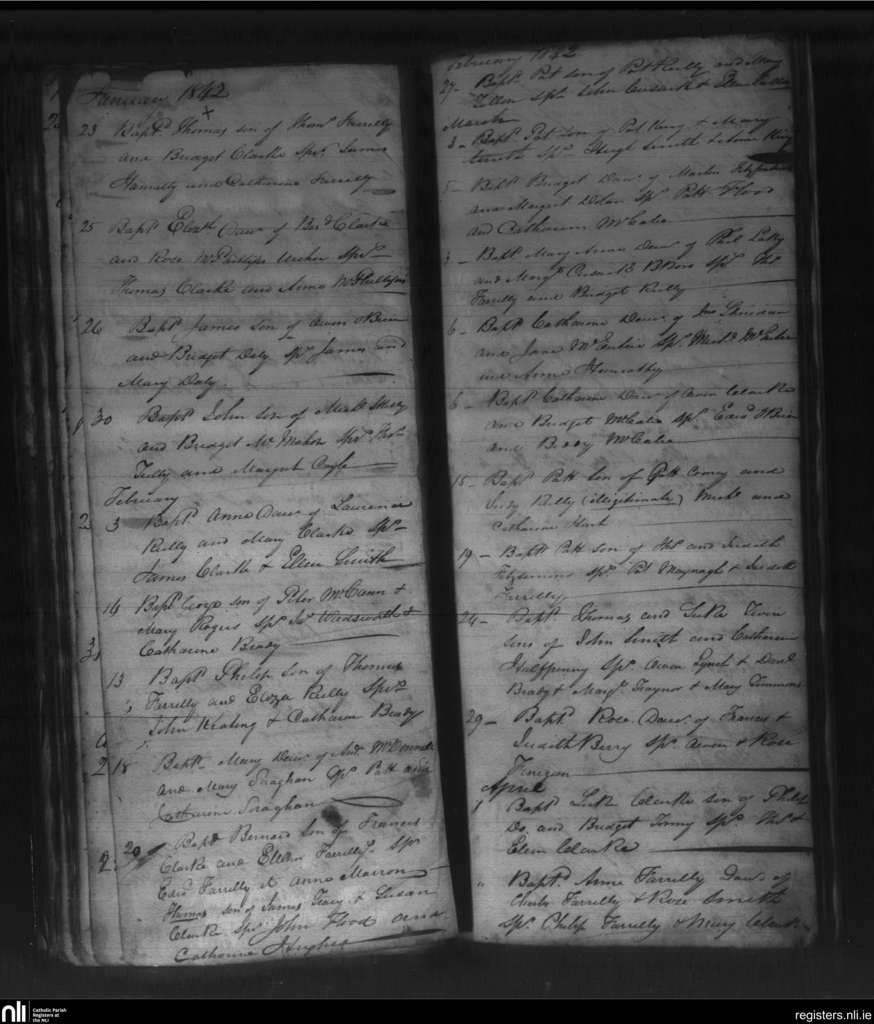 January 1842
23 Bapd. Thomas son of Thoms. Farrelly
and Bridget Clarke Spr. James
and Catharine Farrelly
25 Bapd. Elizth. Daur. of Bard. Clarke
and Rose McPhillips Spr.
Thomas Clarke and Anne McPhillips
26 Bapd. James son of Owen OBrien
and Bridget Daly Spr. James and
Mary Daly.
30 Bapd. John son of
and Bridget Mc Mahon Spr. Thos.
Tully and Margret Coyle
February
3 Bapd. Anne Daur. of Laurence
Reilly and Mary Clarke Spr.
James Clarke & Ellen Smith
14 Bapd. George son of Peter McCann &
Mary Rogers Spr. Wadsworth &
Catharine Brady
13 Bapd. Philip son of Thomas
Farrelly and Eliza Reilly Spr.
John Keating & Catharine Brady
18 Bapd. Mary Daur. of
and Mary Spr. Patt and
Catharine
20 Bapd. Bernard son of Francis
Clarke and Ellen Farrelly. Spr.
Edwd. Farrelly & Anne
Thomas son of James & Susan
Clarke Spr. John Flood and
Catherine Hughes
February 1842
27- Bapd. Pat son of Pat Reilly and Mary
Spr. John Cusack & Ellen
March
3- Bapd. Pat son of Pat King & Mary
Spr. Hugh Smith & King
5- Bapd. Bridget Daur. of Martin Fitzpatrick
and Margret Dolan Spr. Patt Flood
and Catharine McCabe
Bapd. Mary Anne Daur. of Phil Lally
and Margt. Cusack Spr. Thos.
Farrelly and Bridget Reilly
6- Bapd. Catharine Daur. of Jno. Sheridan
and Jane McEntire Spr. Michl. McEntire
and Anne
6- Bapd. Catharine Daur. of Owen Clarke
and Bridget McCabe Spr. Edwd. OBrien
and Biddy McCabe
15- Bapd. Patt son of Patt and
Judy Reilly (illegitimate) Michl. and
Catharine
19- Bapd. Patt son of Thos. and Judith
Fitzsimons Spr. Pat & Judith
Farrelly
24- Bapd. Thomas and Luke Twin
sons of John Smith and Catharine
Halfpenny Spr. Owen Lynch & Danl.
Brady & Margt. Traynor & Mary Timmons
29- Bapd. Rose Daur. of Francis &
Judith Berry Spr. Owen & Rose
Finigan
April
1 Bapd. Luke Clarke son of Philip
Do. and Bridget Spr. Thos. &
Ellen Clarke
" Bapd. Anne Farrelly Daur. of
Charles Farrelly & Rose Smith
Spr. Philip Farrelly & Mary Clarke
nli
Catholic Parish
Registers at
the NLI
registers.nli.ie